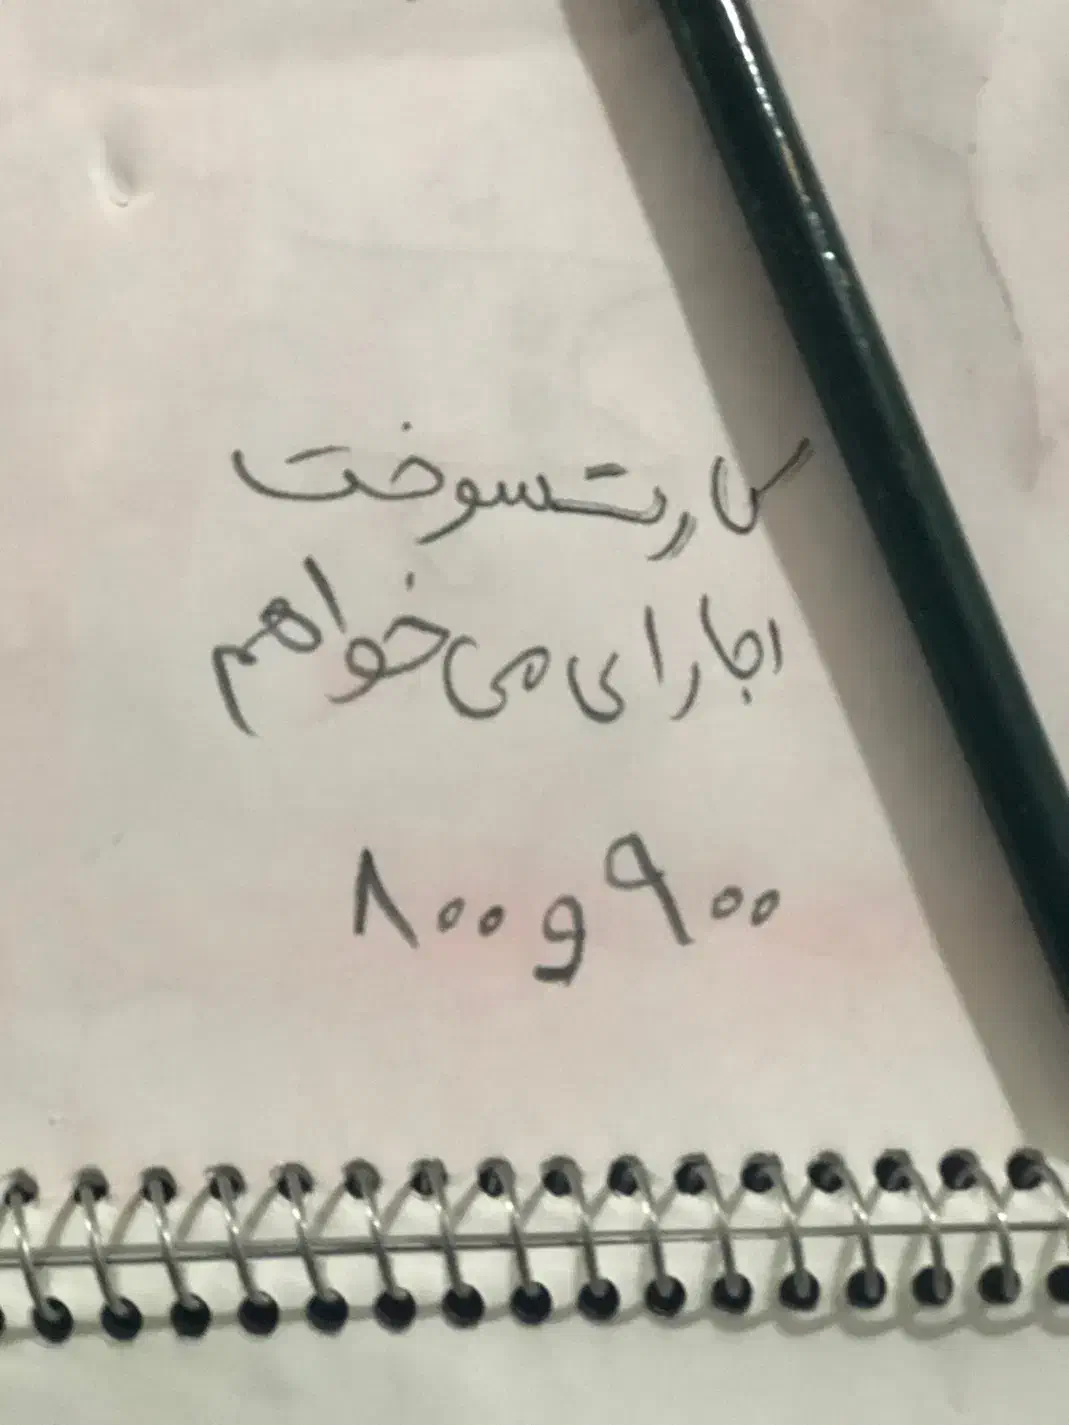 کارت سوخت
اجارا ای می خواهم
۹۰۰ و ۸۰۰